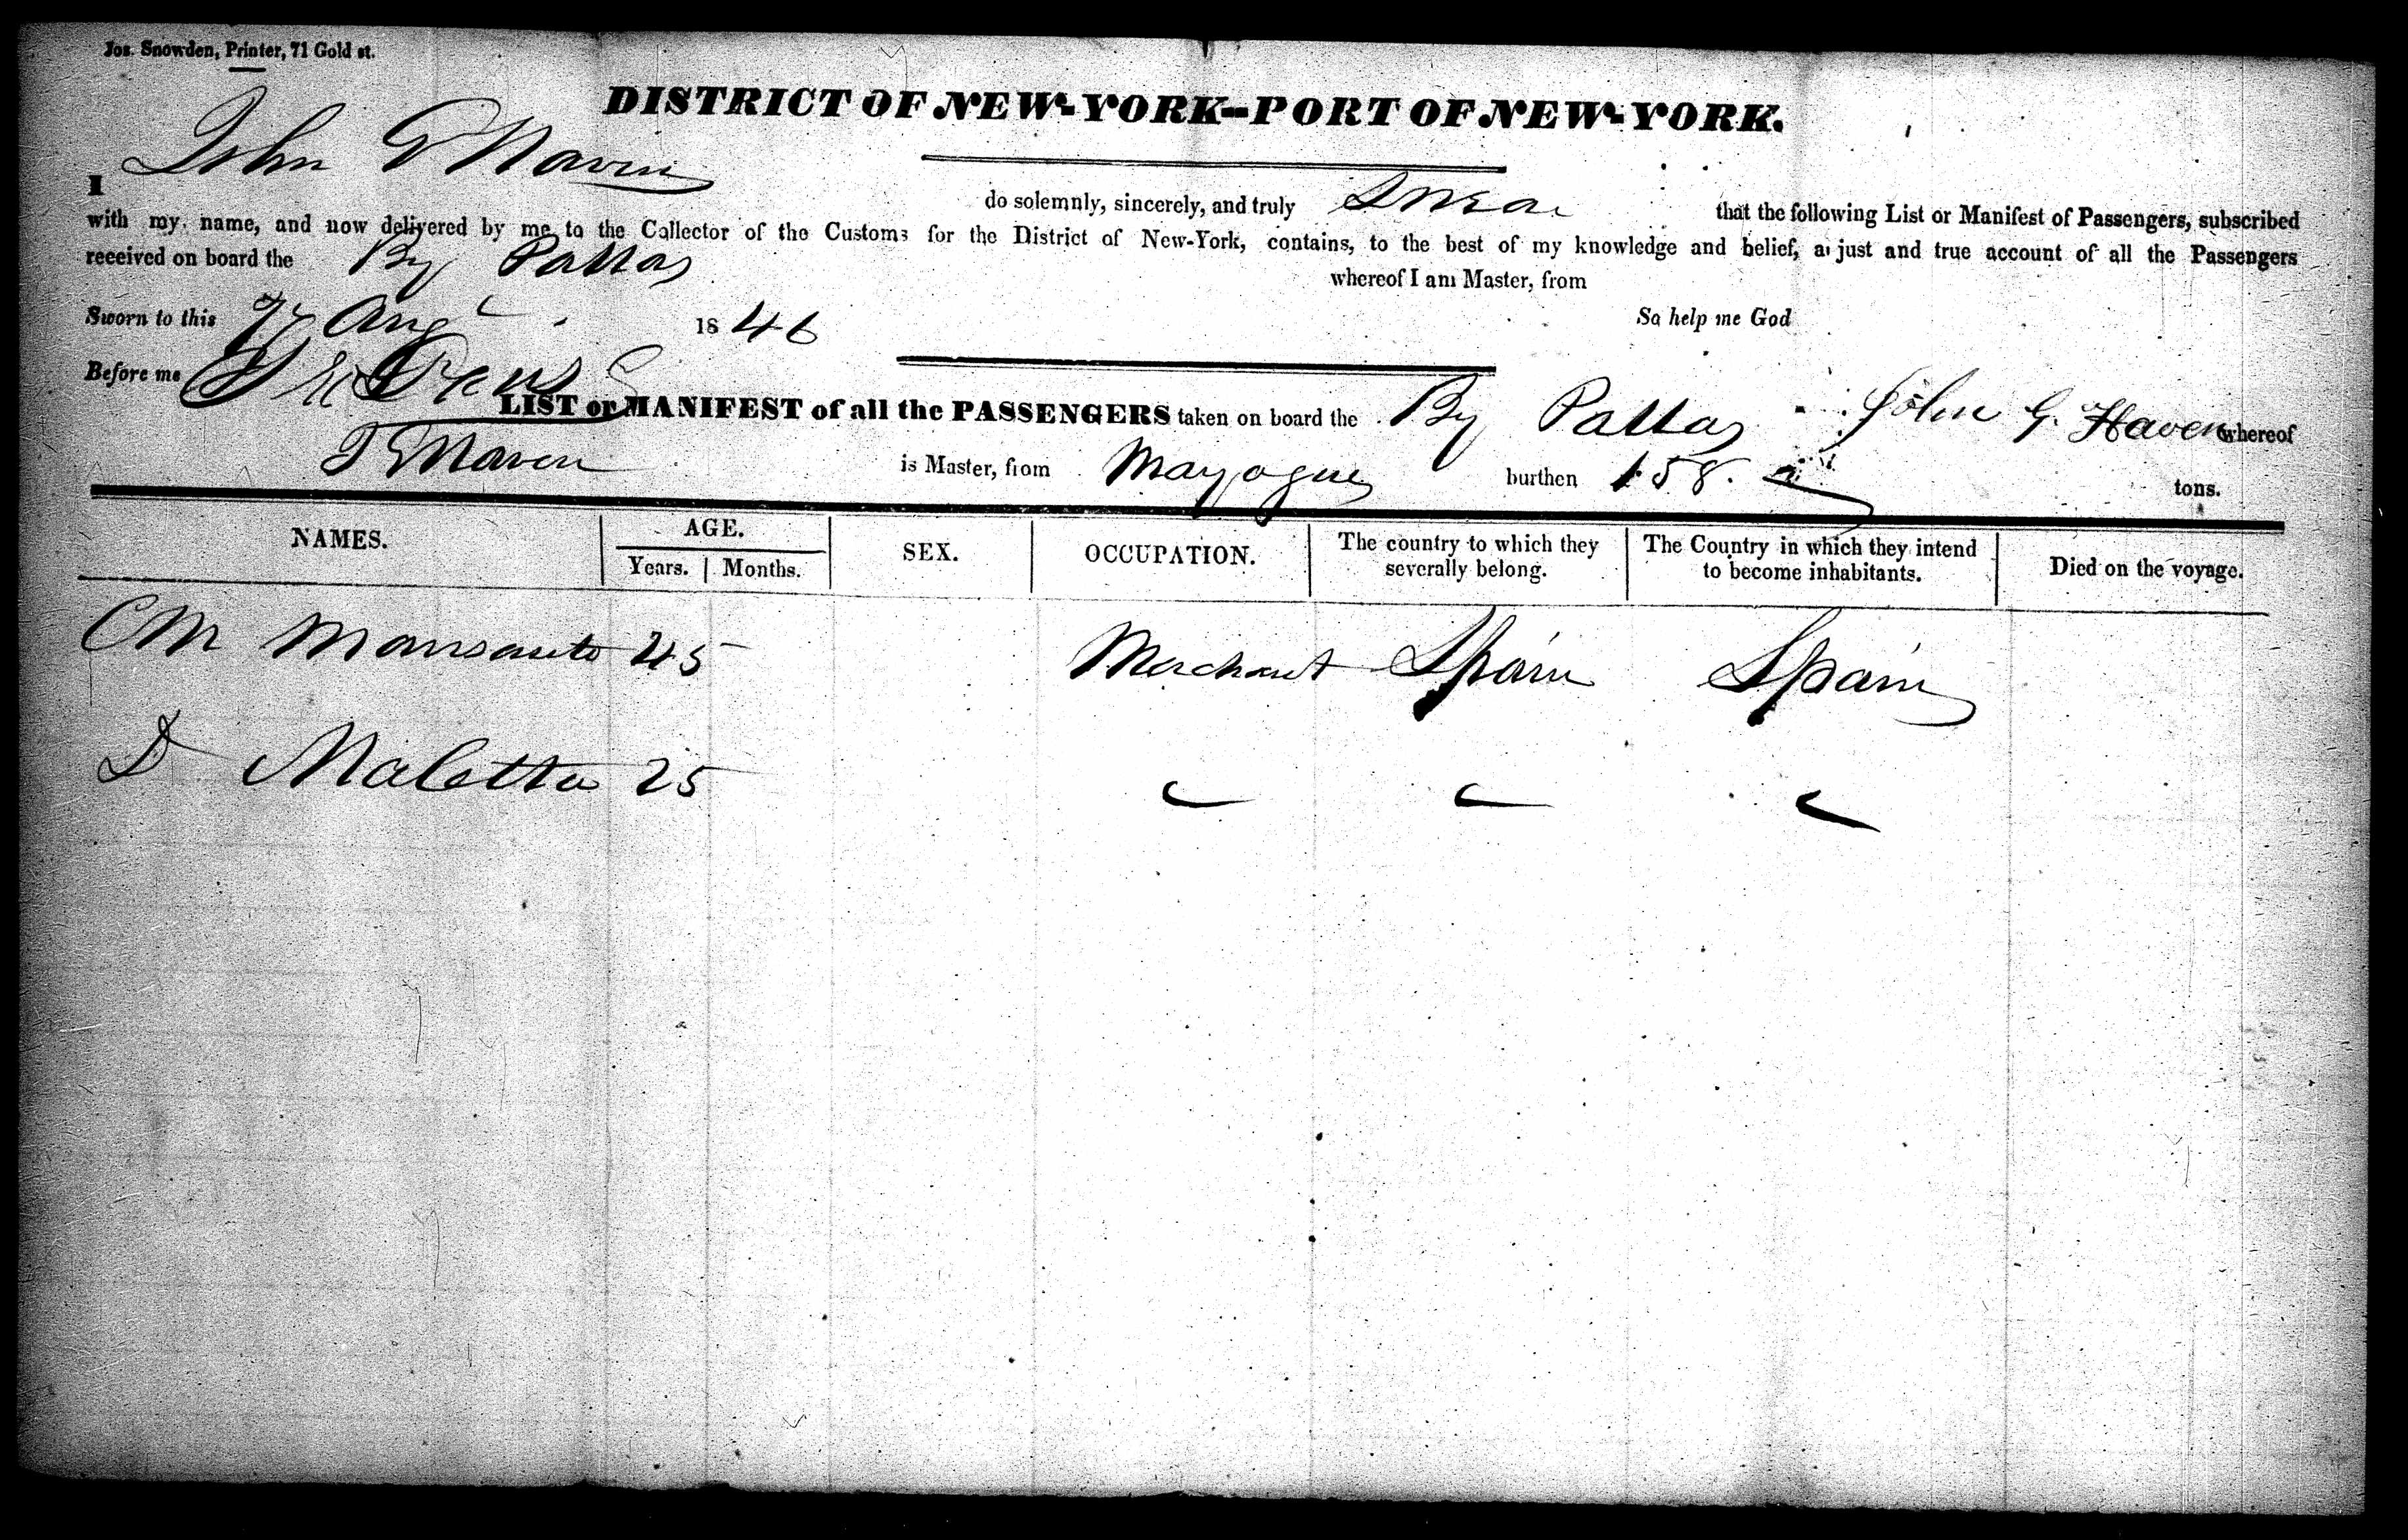 Jos. Snowden, Printer, 71 Gold st.
DISTRICT OF NEW-YORK--PORT OF NEW-YORK.
I John G Haven do solemnly, sincerely, and truly Swear that the following List or Manifest of Passengers, subscribed
with my name, and now delivered by me to the Collector of the Customs for the District of New-York, contains, to the best of my knowledge and belief, a just and true account of all the Passengers
received on board the Bg Pallas whereof I am Master, from
Sworn to this Aug 1846 So help me God
Before me
LIST or MANIFEST of all the PASSENGERS taken on board the Bg Pallas John G. Haven whereof
Haven is Master, from Mayague burthen 158 tons.
NAMES. AGE. SEX. OCCUPATION. The country to which they severally belong. The Country in which they intend to become inhabitants. Died on the voyage.
Years. Months.
CM 45 Merchant Spain Spain
D Maletta 25